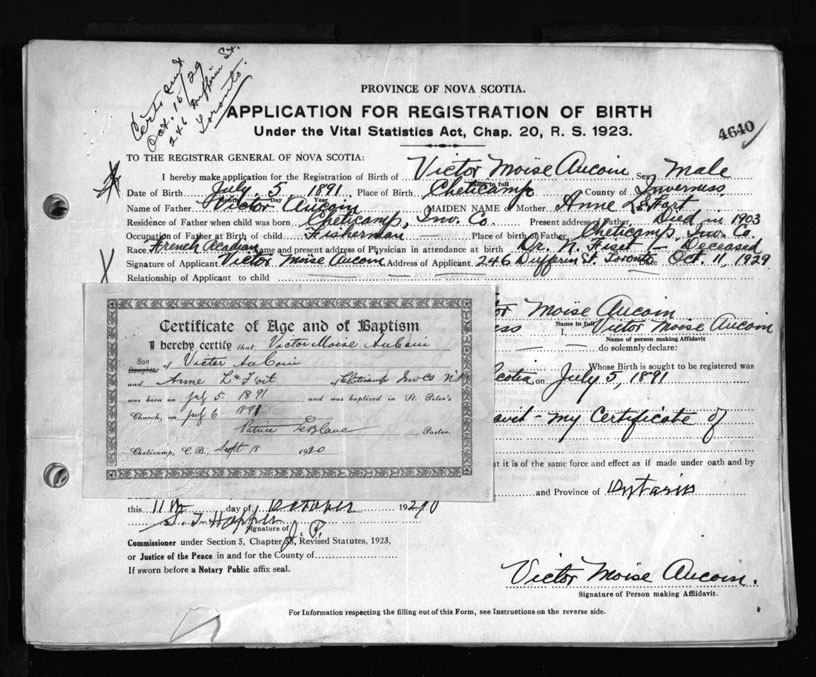 Certs sent
Oct. 15/29
246 Dufferin St.
Toronto.
PROVINCE OF NOVA SCOTIA.
APPLICATION FOR REGISTRATION OF BIRTH
Under the Vital Statistics Act, Chap. 20, R. S. 1923.
4640
TO THE REGISTRAR GENERAL OF NOVA SCOTIA:
I hereby make application for the Registration of Birth of Victor Moïse Aucoin Sex Male
Name in full
Date of Birth July 5 1891 Place of Birth Cheticamp County of Inverness
Day Year
Name of Father Victor Aucoin MAIDEN NAME of Mother Anne LeFort
Residence of Father when child was born Cheticamp, Inv. Co. Present address of Father Died in 1903
Occupation of Father at Birth of child Fisherman Place of birth of Father Cheticamp, Inv. Co.
Race French Acadian Name and present address of Physician in attendance at birth Dr. N. Fiset - Deceased
Signature of Applicant Victor Moïse Aucoin Address of Applicant 246 Dufferin St. Toronto Oct. 11, 1929
Relationship of Applicant to child
Moïse Aucoin
Name in full
I, Victor Moise Aucoin
Name of person making Affidavit
do solemnly declare:
Whose Birth is sought to be registered was
Scotia on July 5, 1891
- My Certificate of
it is of the same force and effect as if made under oath and by
and Province of Ontario
Certificate of Age and of Baptism
I hereby certify that Victor Moise AuCoin
Son
Daughter of Victor AuCoin
and Anne LeFort of Cheticamp Inv Co N.S.
was born on July 5 1891 and was baptized in St. Peter's
Church, on July 6 1891
Patrice LeBlanc Pastor.
Cheticamp, C. B., Sept 18 1910
this 11th day of October
Signature of
J. P.
Commissioner under Section 5, Chapter 38, Revised Statutes, 1923,
or Justice of the Peace in and for the County of
If sworn before a Notary Public affix seal.
Victor Moïse Aucoin.
Signature of Person making Affidavit.
For Information respecting the filling out of this Form, see Instructions on the reverse side.